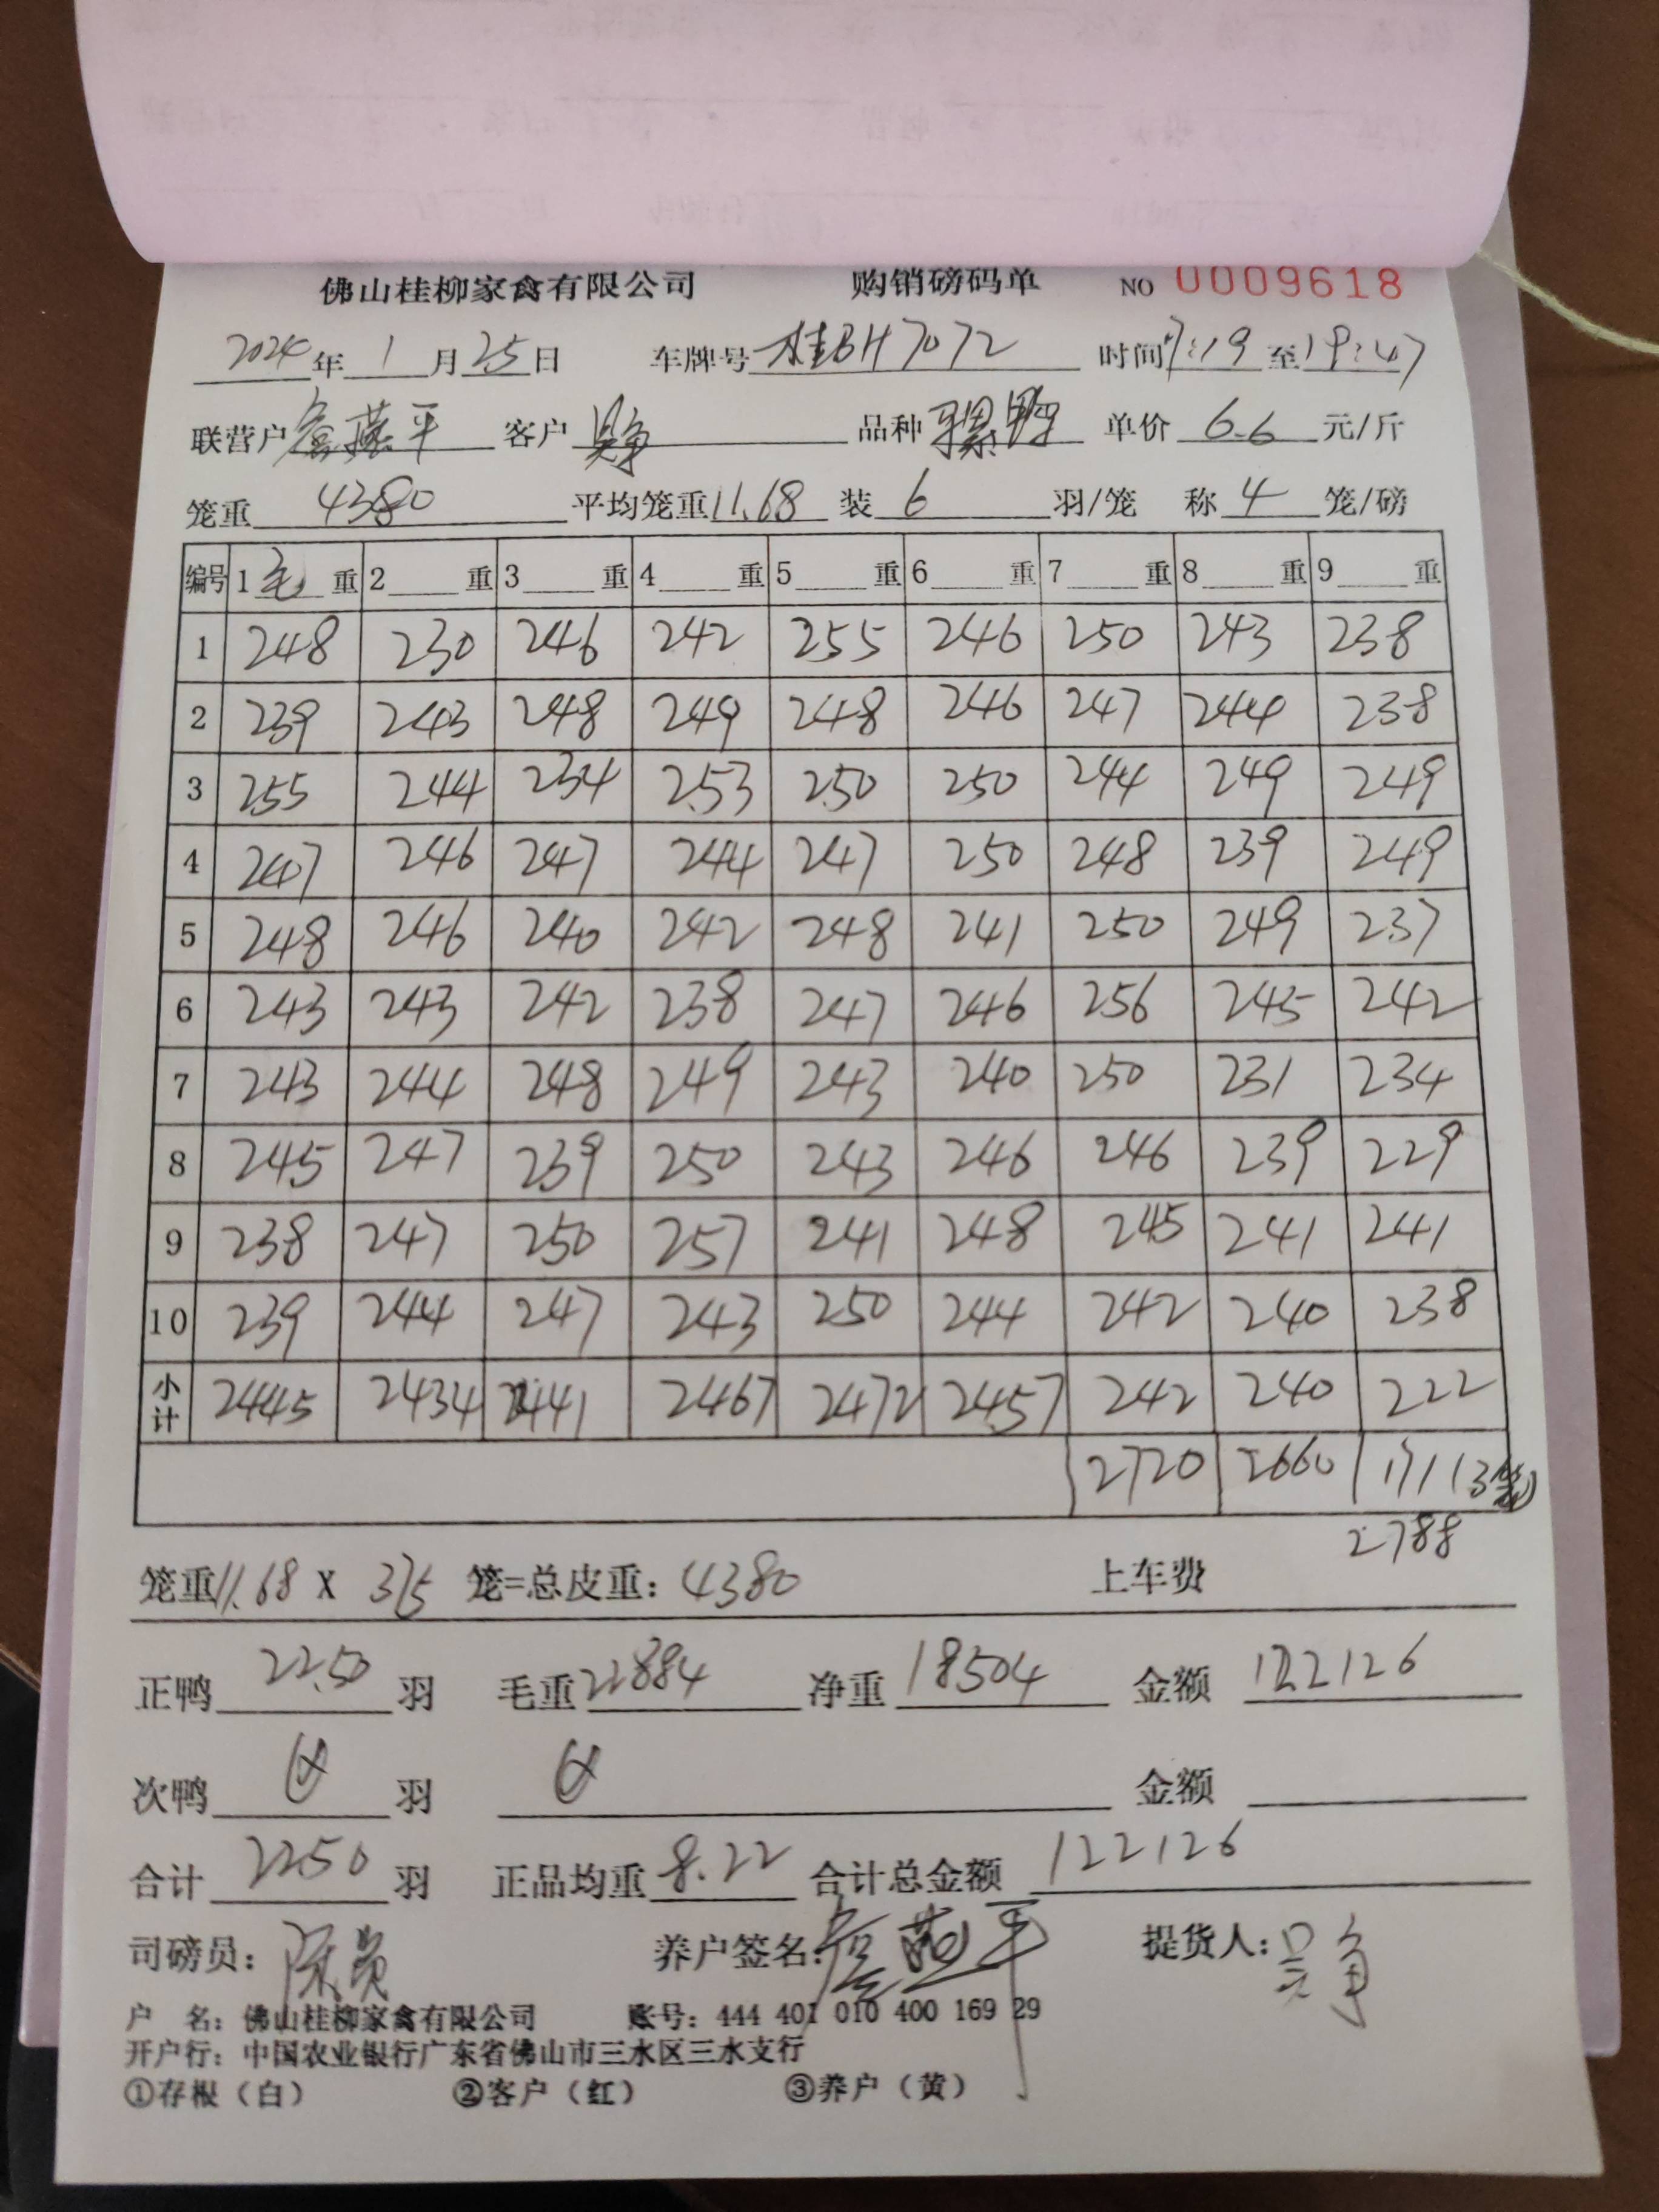 佛山桂柳家禽有限公司 购销磅码单 NO 0009618
2024年1月25日 车牌号 桂BH7072 时间17:19至19:47
联营户 詹燕平 客户 吴争 品种 骡鸭 单价 6.6 元/斤
笼重 4380 平均笼重11.68 装 6 羽/笼 称 4 笼/磅
编号 1毛重 2 重 3 重 4 重 5 重 6 重 7 重 8 重 9 重
1 248 230 246 242 255 246 250 243 238
2 239 243 248 249 248 246 247 244 238
3 255 244 234 253 250 250 244 249 249
4 247 246 247 244 247 250 248 239 249
5 248 246 240 242 248 241 250 249 237
6 243 243 242 238 247 246 256 245 242
7 243 244 248 249 243 240 250 231 234
8 245 247 239 250 243 246 246 239 229
9 238 247 250 257 241 248 245 241 241
10 239 244 247 243 250 244 242 240 238
小计 2445 2434 2441 2467 2472 2457 242 240 222
2720 2660 171(3笼)
2788
笼重11.68 X 375 笼=总皮重：4380 上车费
正鸭 2250 羽 毛重22884 净重 18504 金额 122126
次鸭 羽 金额
合计 2250 羽 正品均重 8.22 合计总金额 122126
司磅员： 养户签名：詹燕平 提货人：吴争
户 名：佛山桂柳家禽有限公司 账号：444 401 010 400 169 29
开户行：中国农业银行广东省佛山市三水区三水支行
①存根（白） ②客户（红） ③养户（黄）